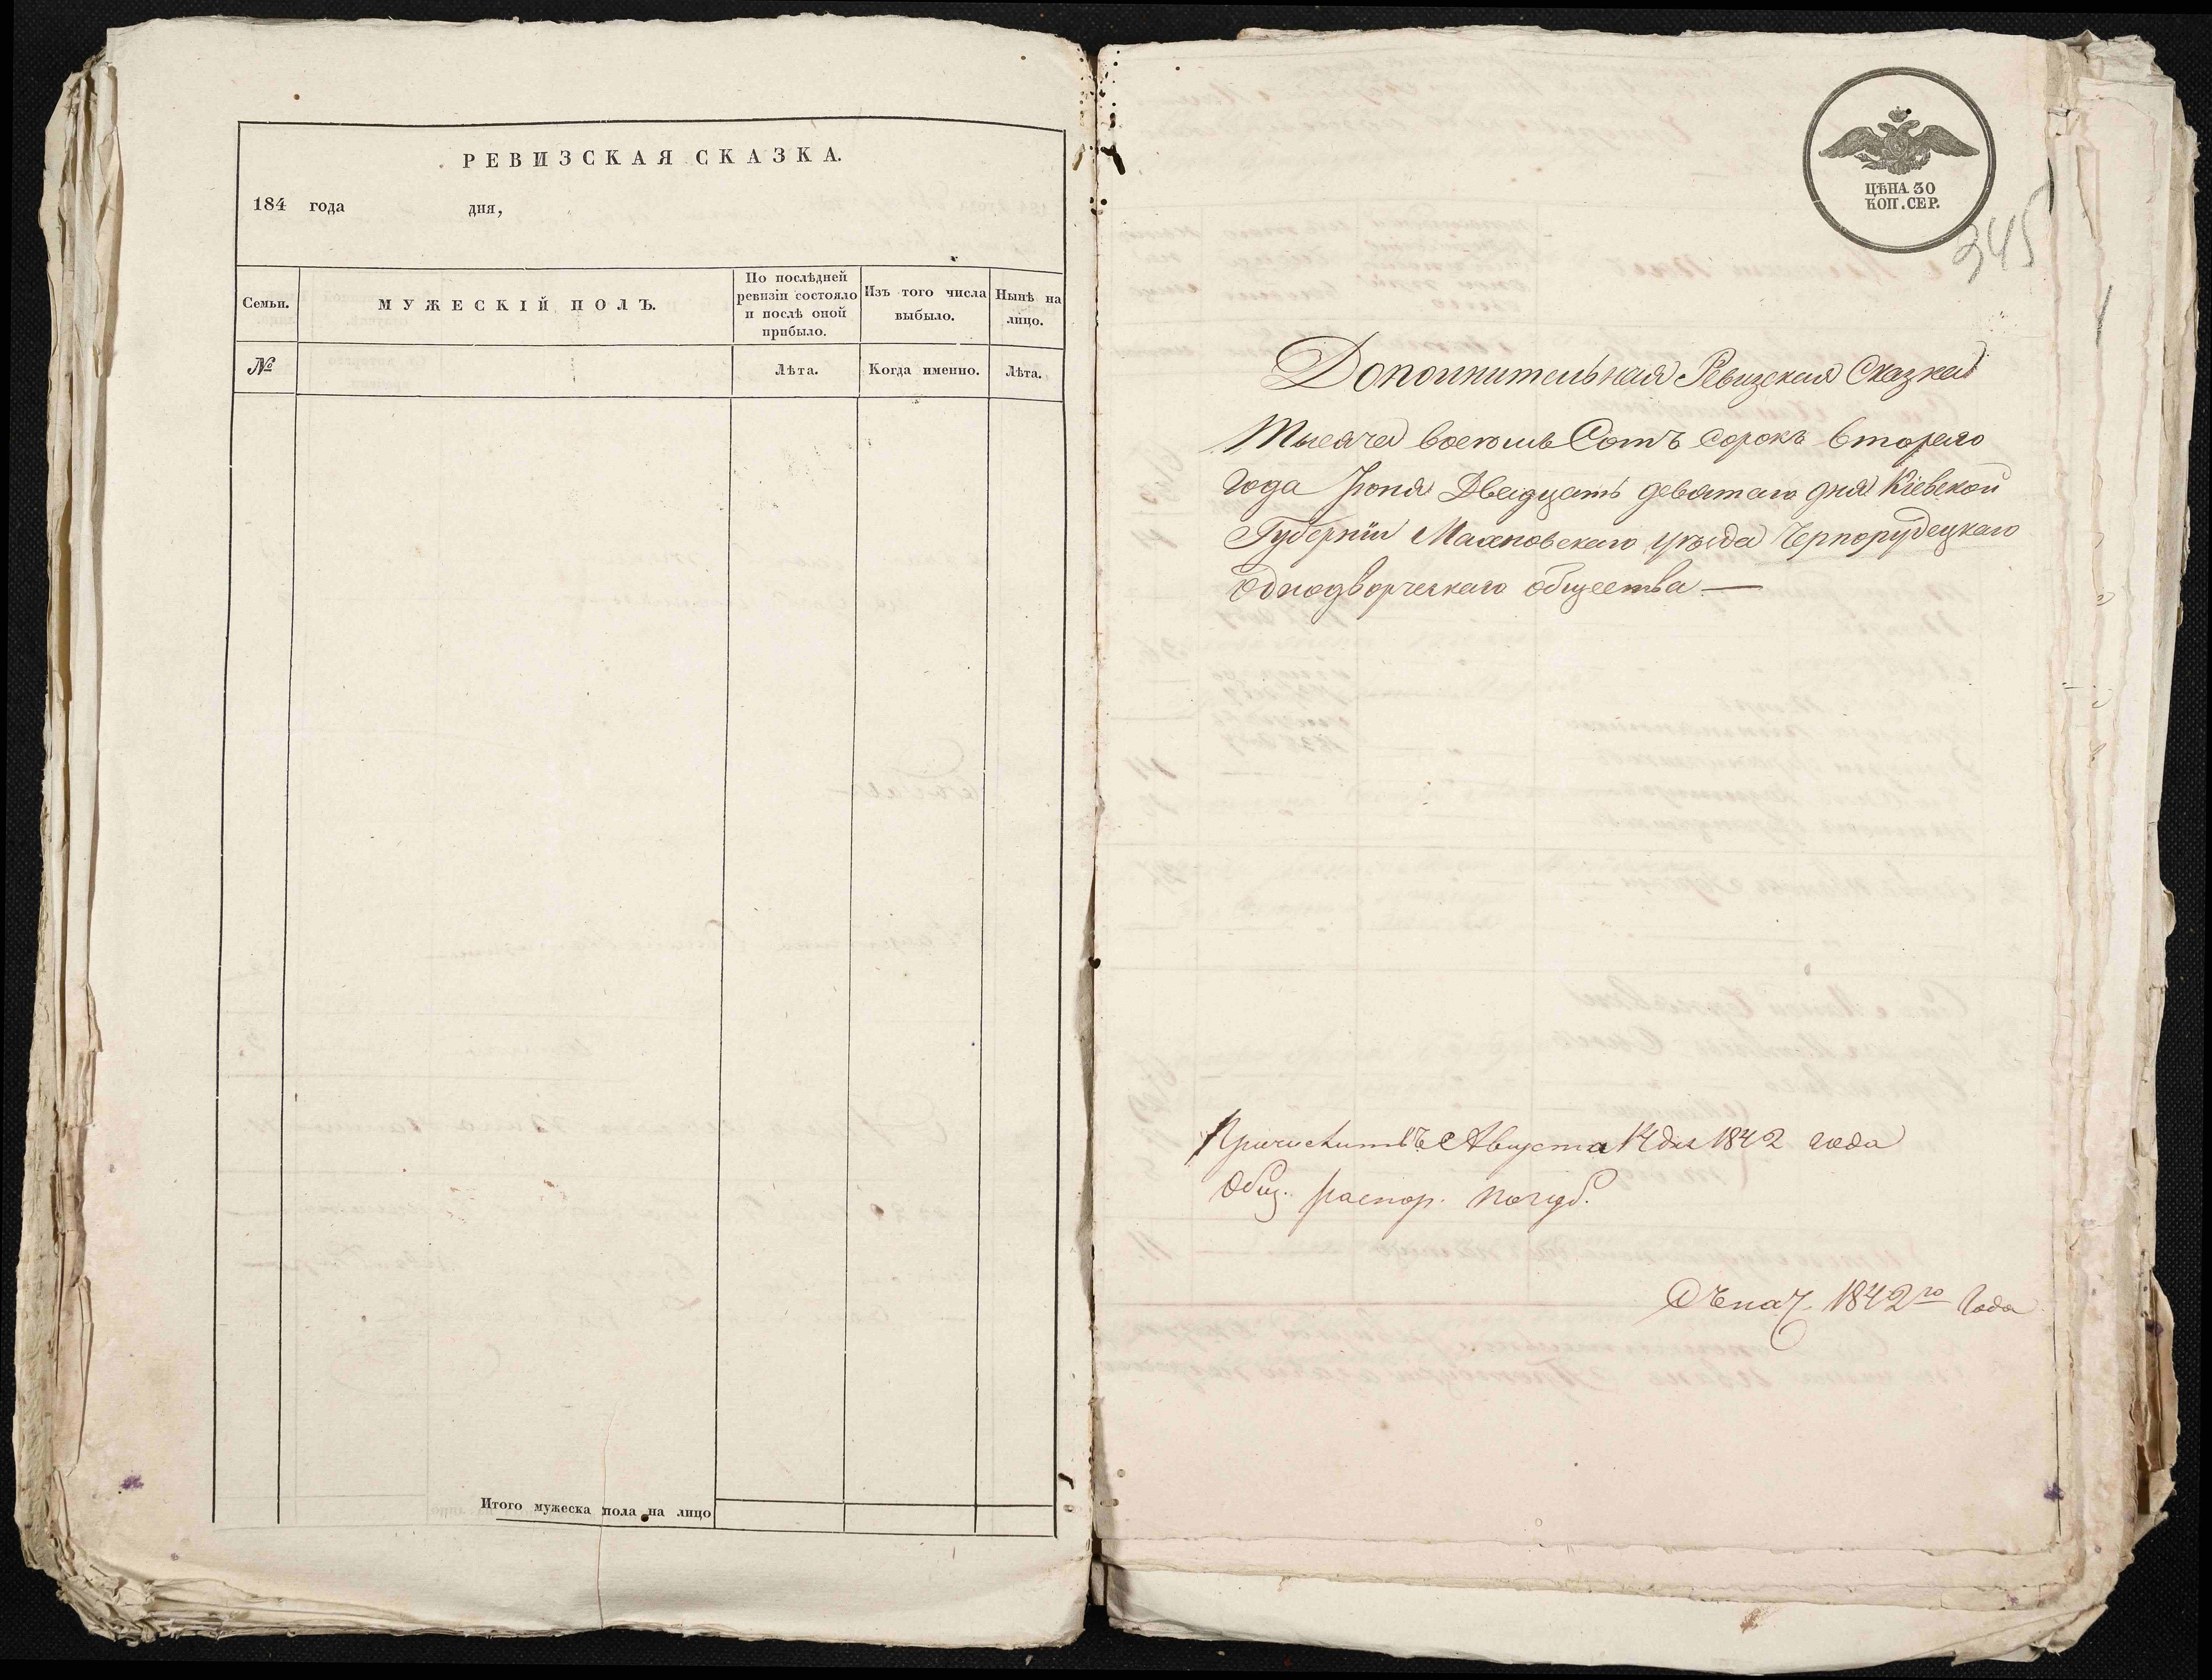 РЕВИЗСКАЯ СКАЗКА.
184 года дня,
Семьи.
МУЖЕСКІЙ ПОЛЪ.
По послѣдней
ревизіи состояло
и послѣ оной
прибыло.
Изъ того числа
выбыло.
Нынѣ на
лицо.
№
Лѣта.
Когда именно.
Лѣта.
Итого мужеска пола на лицо
ЦѢНА 30
КОП. СЕР.
345
Дополнительная Ревизская Сказка
Тысяча восемь Сотъ сорокъ втораго
года Іюня Двадцать девятаго дня Кіевской
Губерніи Махновскаго уѣзда Чернорудецкаго
Однодворческаго общества —
Августа 14 дня 1842 года
Общ. распор. по губ.
1842го Года